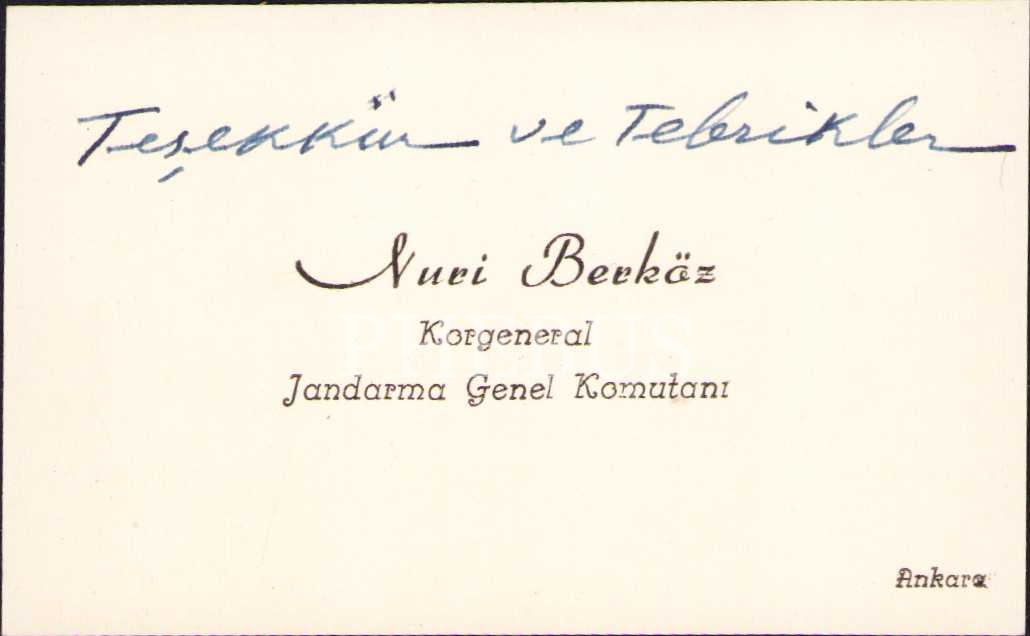 Teşekkür ve Tebrikler
Nuri Berköz
Korgeneral
PHEBUS
Jandarma Genel Komutanı
Ankara